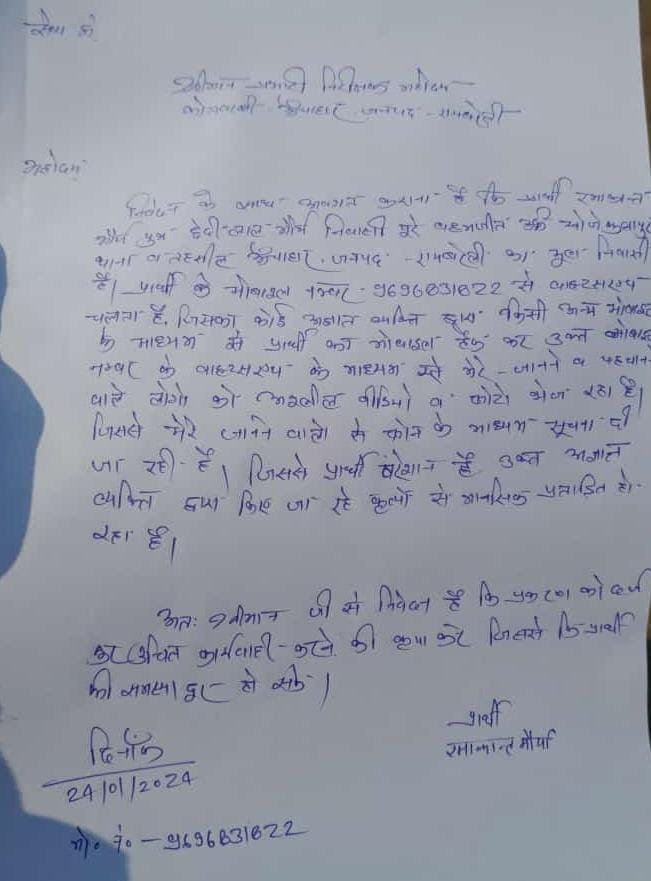 सेवा में
श्रीमान प्रभारी निरीक्षक महोदय
कोतवाली - ऊँचाहार, जनपद - रायबरेली
महोदय
निवेदन के साथ अवगत कराना है कि प्रार्थी रमाकान्त
मौर्य पुत्र देवी लाल मौर्य निवासी पूरे
थाना व तहसील ऊँचाहार, जनपद - रायबरेली का मूल निवासी
है। प्रार्थी के मोबाइल नम्बर - 9696831822 से वाह्टसएप
चलता है, जिसका कोई अज्ञात व्यक्ति द्वारा किसी अन्य मोबाइल
के माध्यम से प्रार्थी का मोबाइल हैक कर उक्त मोबाइल
नम्बर के वाह्टसएप के माध्यम से मेरे - जानने व पहचान
वाले लोगो को अश्लील वीडियो व फोटो भेज रहा है।
जिससे मेरे जानने वालो के फोन के माध्यम सूचना दी
जा रही है। जिससे प्रार्थी परेशान है उक्त अज्ञात
व्यक्ति द्वारा किए जा रहे कृत्यों से मानसिक प्रताडित हो
रहा है।
अतः श्रीमान जी से निवेदन है कि प्रकरण को दर्ज
कर उचित कार्यवाही - करने की कृपा करे जिससे कि प्रार्थी
की समस्या दूर हो सके।
प्रार्थी
रमाकान्त मौर्या
दिनाँक
24/01/2024
मो० नं० - 9696831822